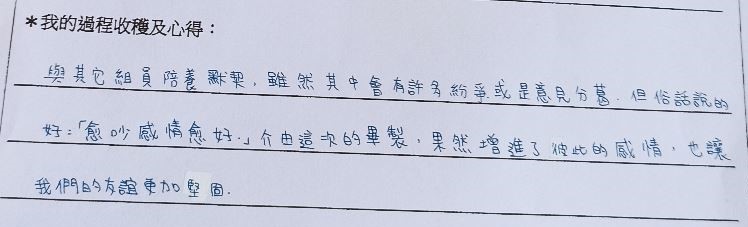 *我的過程收穫及心得：
與其它組員陪養默契，雖然其中會有許多紛爭或是意見分葛．但俗話說的
好：「愈吵感情愈好．」介由這次的畢製，果然增進了彼此的感情，也讓
我們的友誼更加堅固．